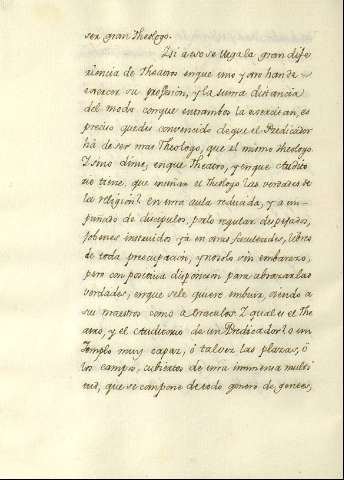 ser gran Theologo.
Y si à eso se llega la gran dife
rencia de Theatro en que uno y otro han de
exercer su profesion, y la suma distancia
del modo con que entrambos la exercitan, es
preciso quedes convencido de que el Predicador
há de ser mas Theologo, que el mismo theologo
Y sino dime, en que Theatro, y en que Audito
rio tiene, que enseñar el Theologo las verdades de
la religion? en una aula reducida, y a un
puñado de discipulos, por lo regular despejados,
Jobenes instruidos ya en otras facultades, libres
de toda preocupacion, y no solo sin embarazo,
pero con positiva disposicion para abrazar las
verdades, en que se le quiere embuir, oiendo a
su maestro como a Oraculo. Y qual es el The
atro, y el Auditorio de un Predicador? o un
Templo muy capaz, ò tal vez las plazas, ò
los campos, cubiertos de una inmensa multi
tud, que se compone de todo genero de gentes,